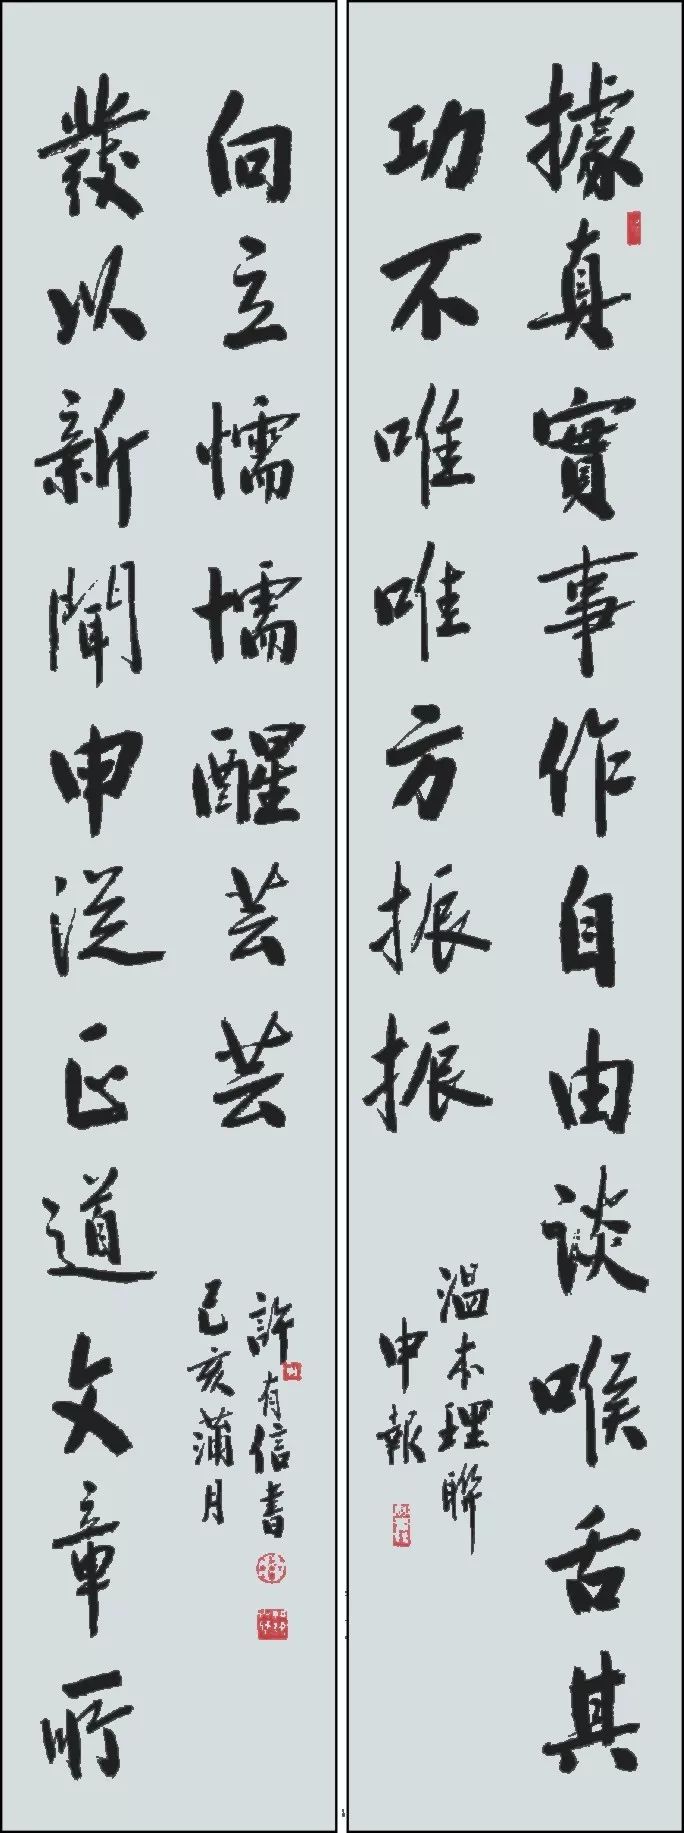 據真實事作自由談喉舌其
功不唯唯方振振
溫本理聯
申報
發以新聞申從正道文章所
向立懦懦醒芸芸
許有信書
己亥蒲月